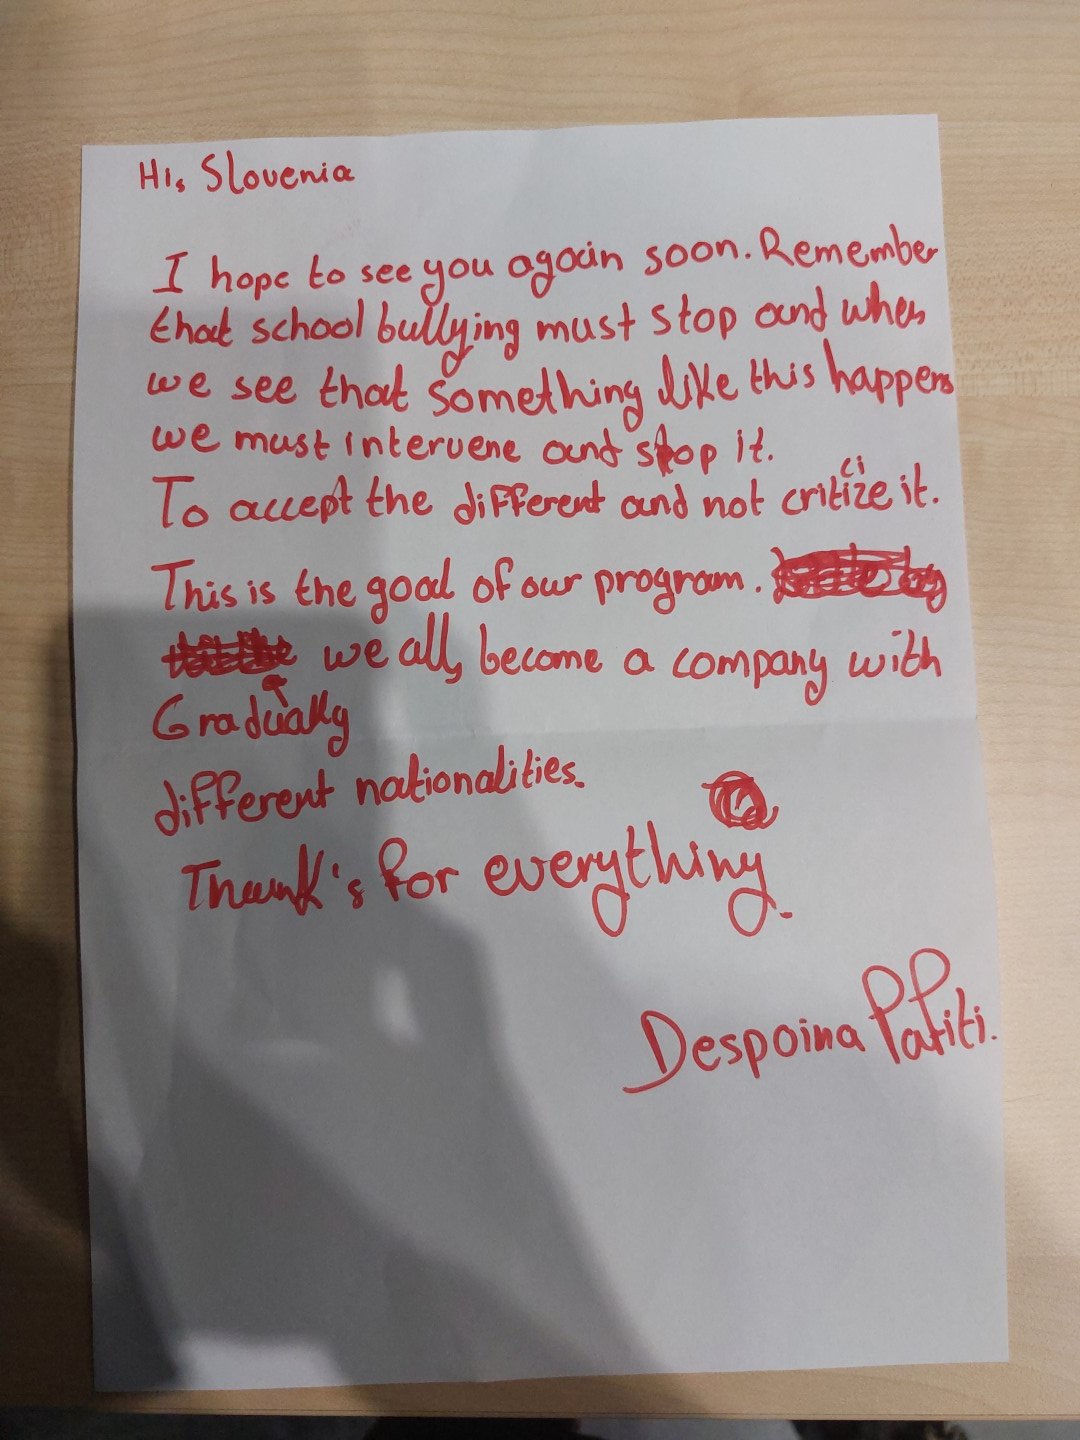 Hi, Slovenia
I hope to see you again soon. Remember
that school bullying must stop and when
we see that something like this happens
we must intervene and stop it.
To accept the different and not criticize it.
This is the goal of our program.
we all, become a company with
Gradually
different nationalities.
Thank's for everything.
Despoina Pafiti.